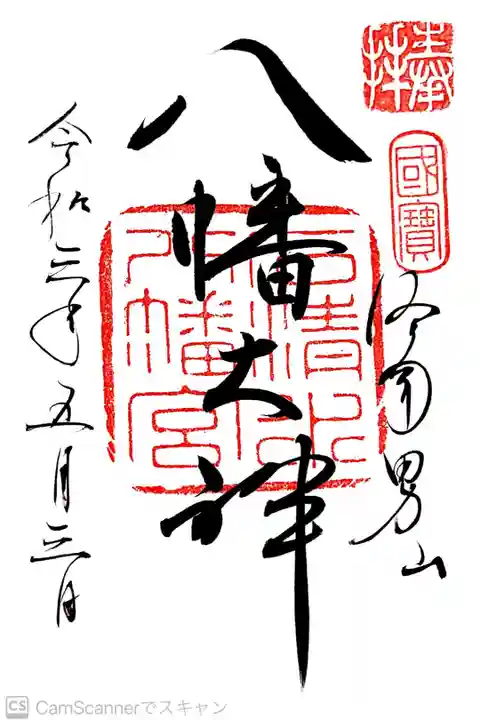 奉拝
國寶
洛南男山
八幡大神
石清水
八幡宮
令和三年五月三日
CS CamScannerでスキャン